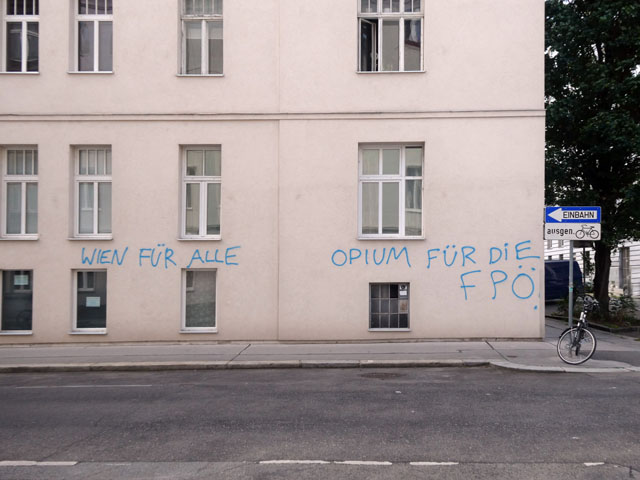 WIEN FÜR ALLE
OPIUM FÜR DIE
FPÖ.
EINBAHN
ausgen.